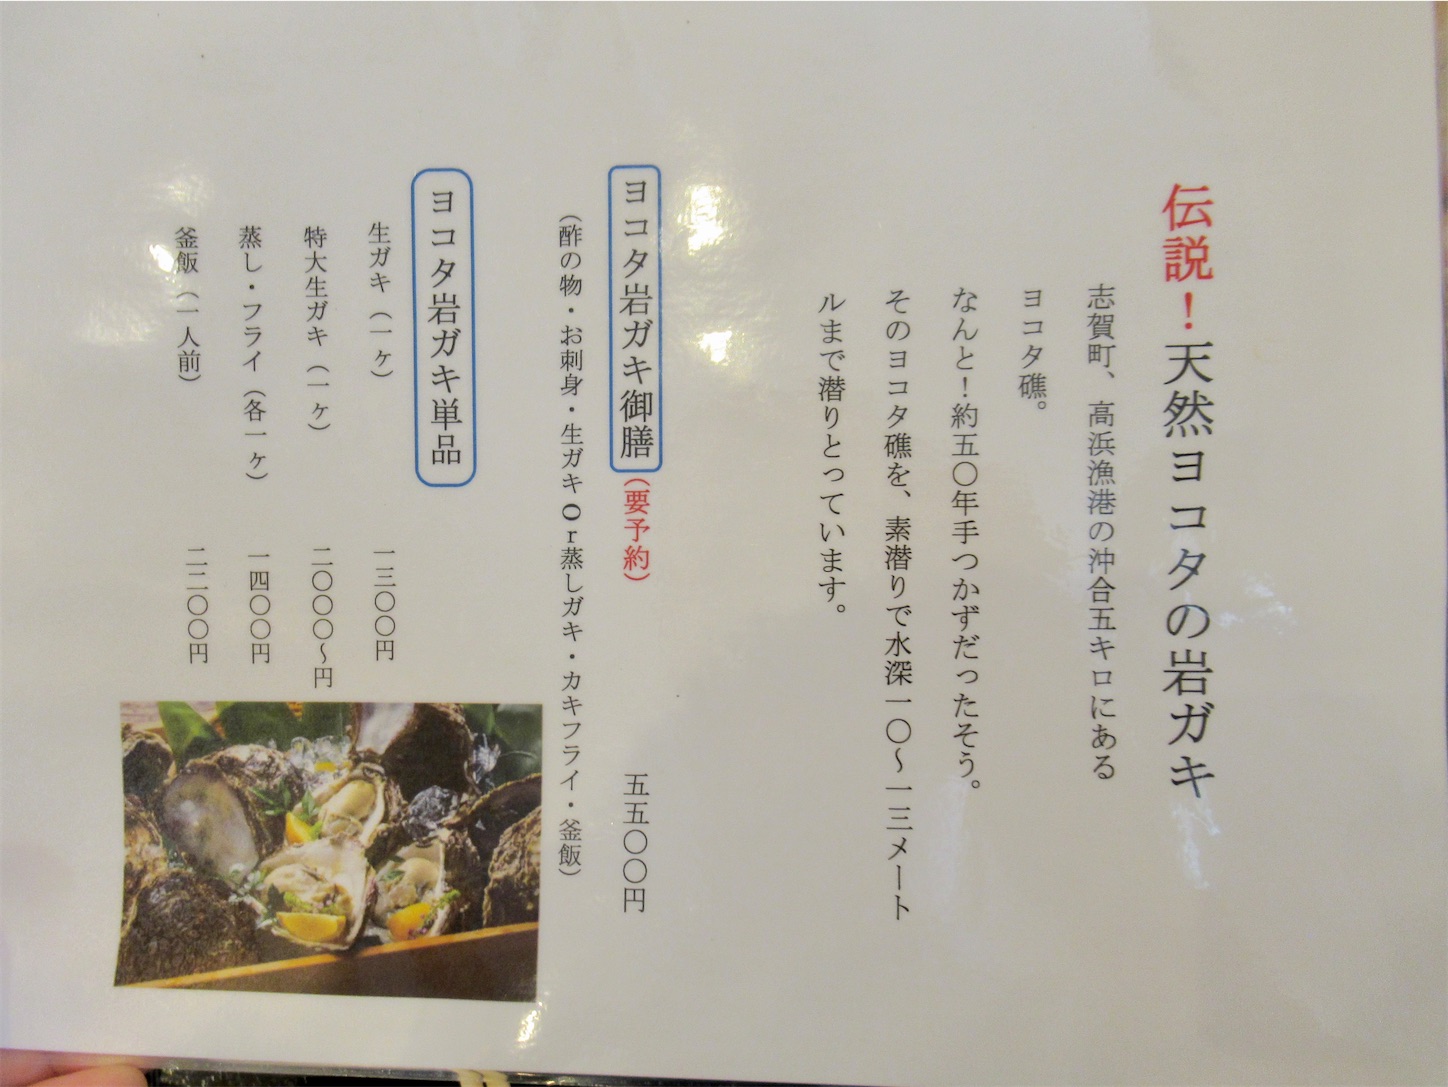 伝説！天然ヨコタの岩ガキ
志賀町、高浜漁港の沖合五キロにある
ヨコタ礁。
なんと！約五〇年手つかずだったそう。
そのヨコタ礁を、素潜りで水深一〇～一三メート
ルまで潜りとっています。
ヨコタ岩ガキ御膳（要予約） 五五〇〇円
（酢の物・お刺身・生ガキor蒸しガキ・カキフライ・釜飯）
ヨコタ岩ガキ単品
生ガキ（一ヶ） 一三〇〇円
特大生ガキ（一ヶ） 二〇〇〇～円
蒸し・フライ（各一ヶ） 一四〇〇円
釜飯（一人前） 二二〇〇円